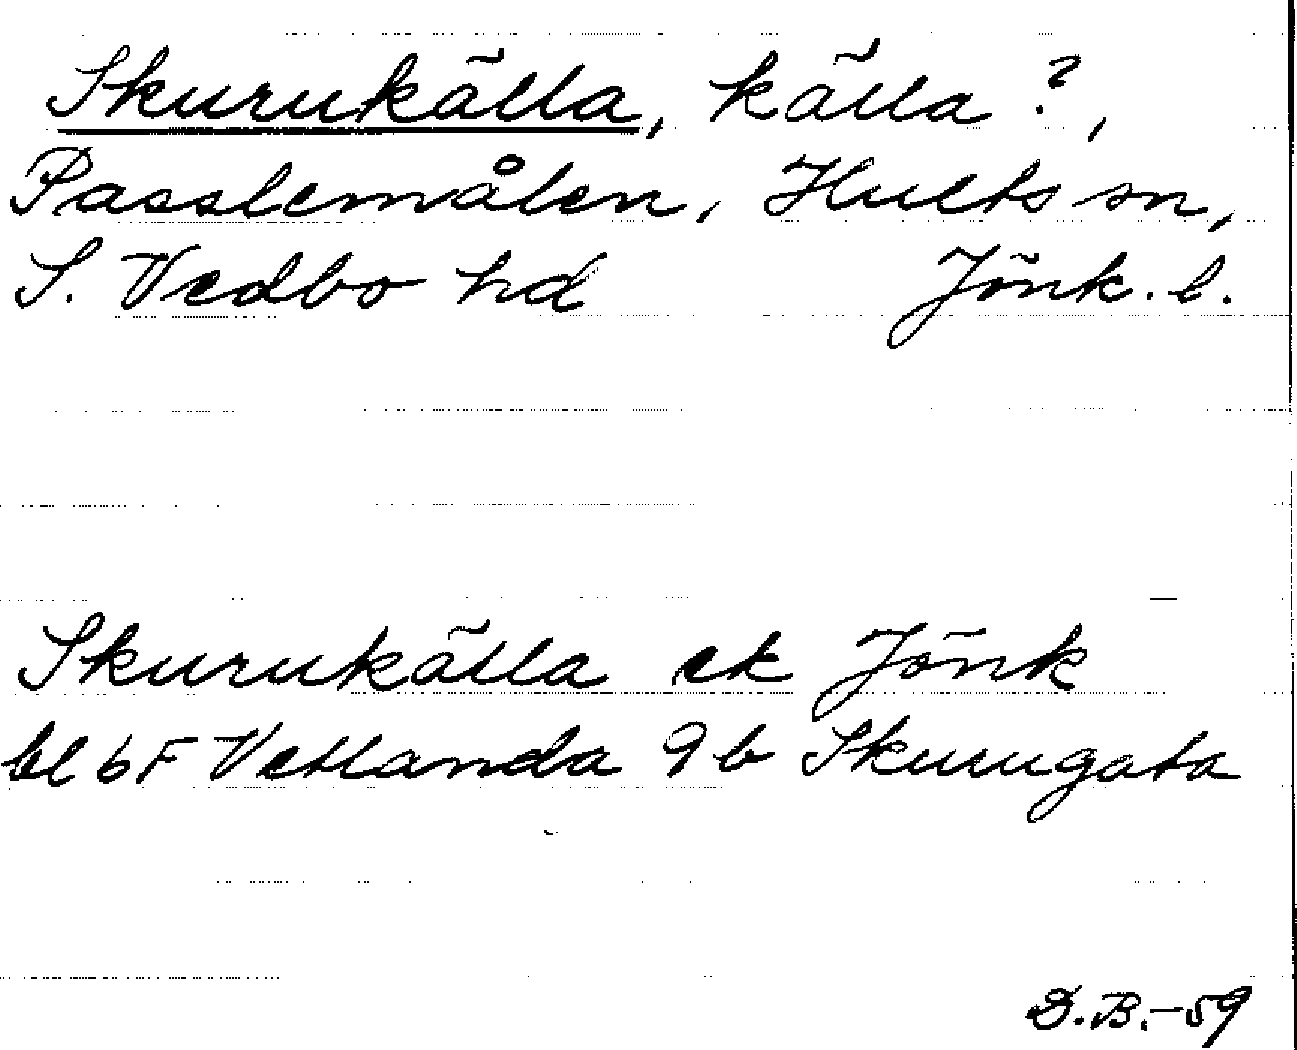 Skurukälla, källa?,
Passlemålen, Hults sn,
S. Vedbo hd Jönk. l.
Skurukälla ek Jönk
bl 6F Vetlanda 9b Skurugata
D.B.-59